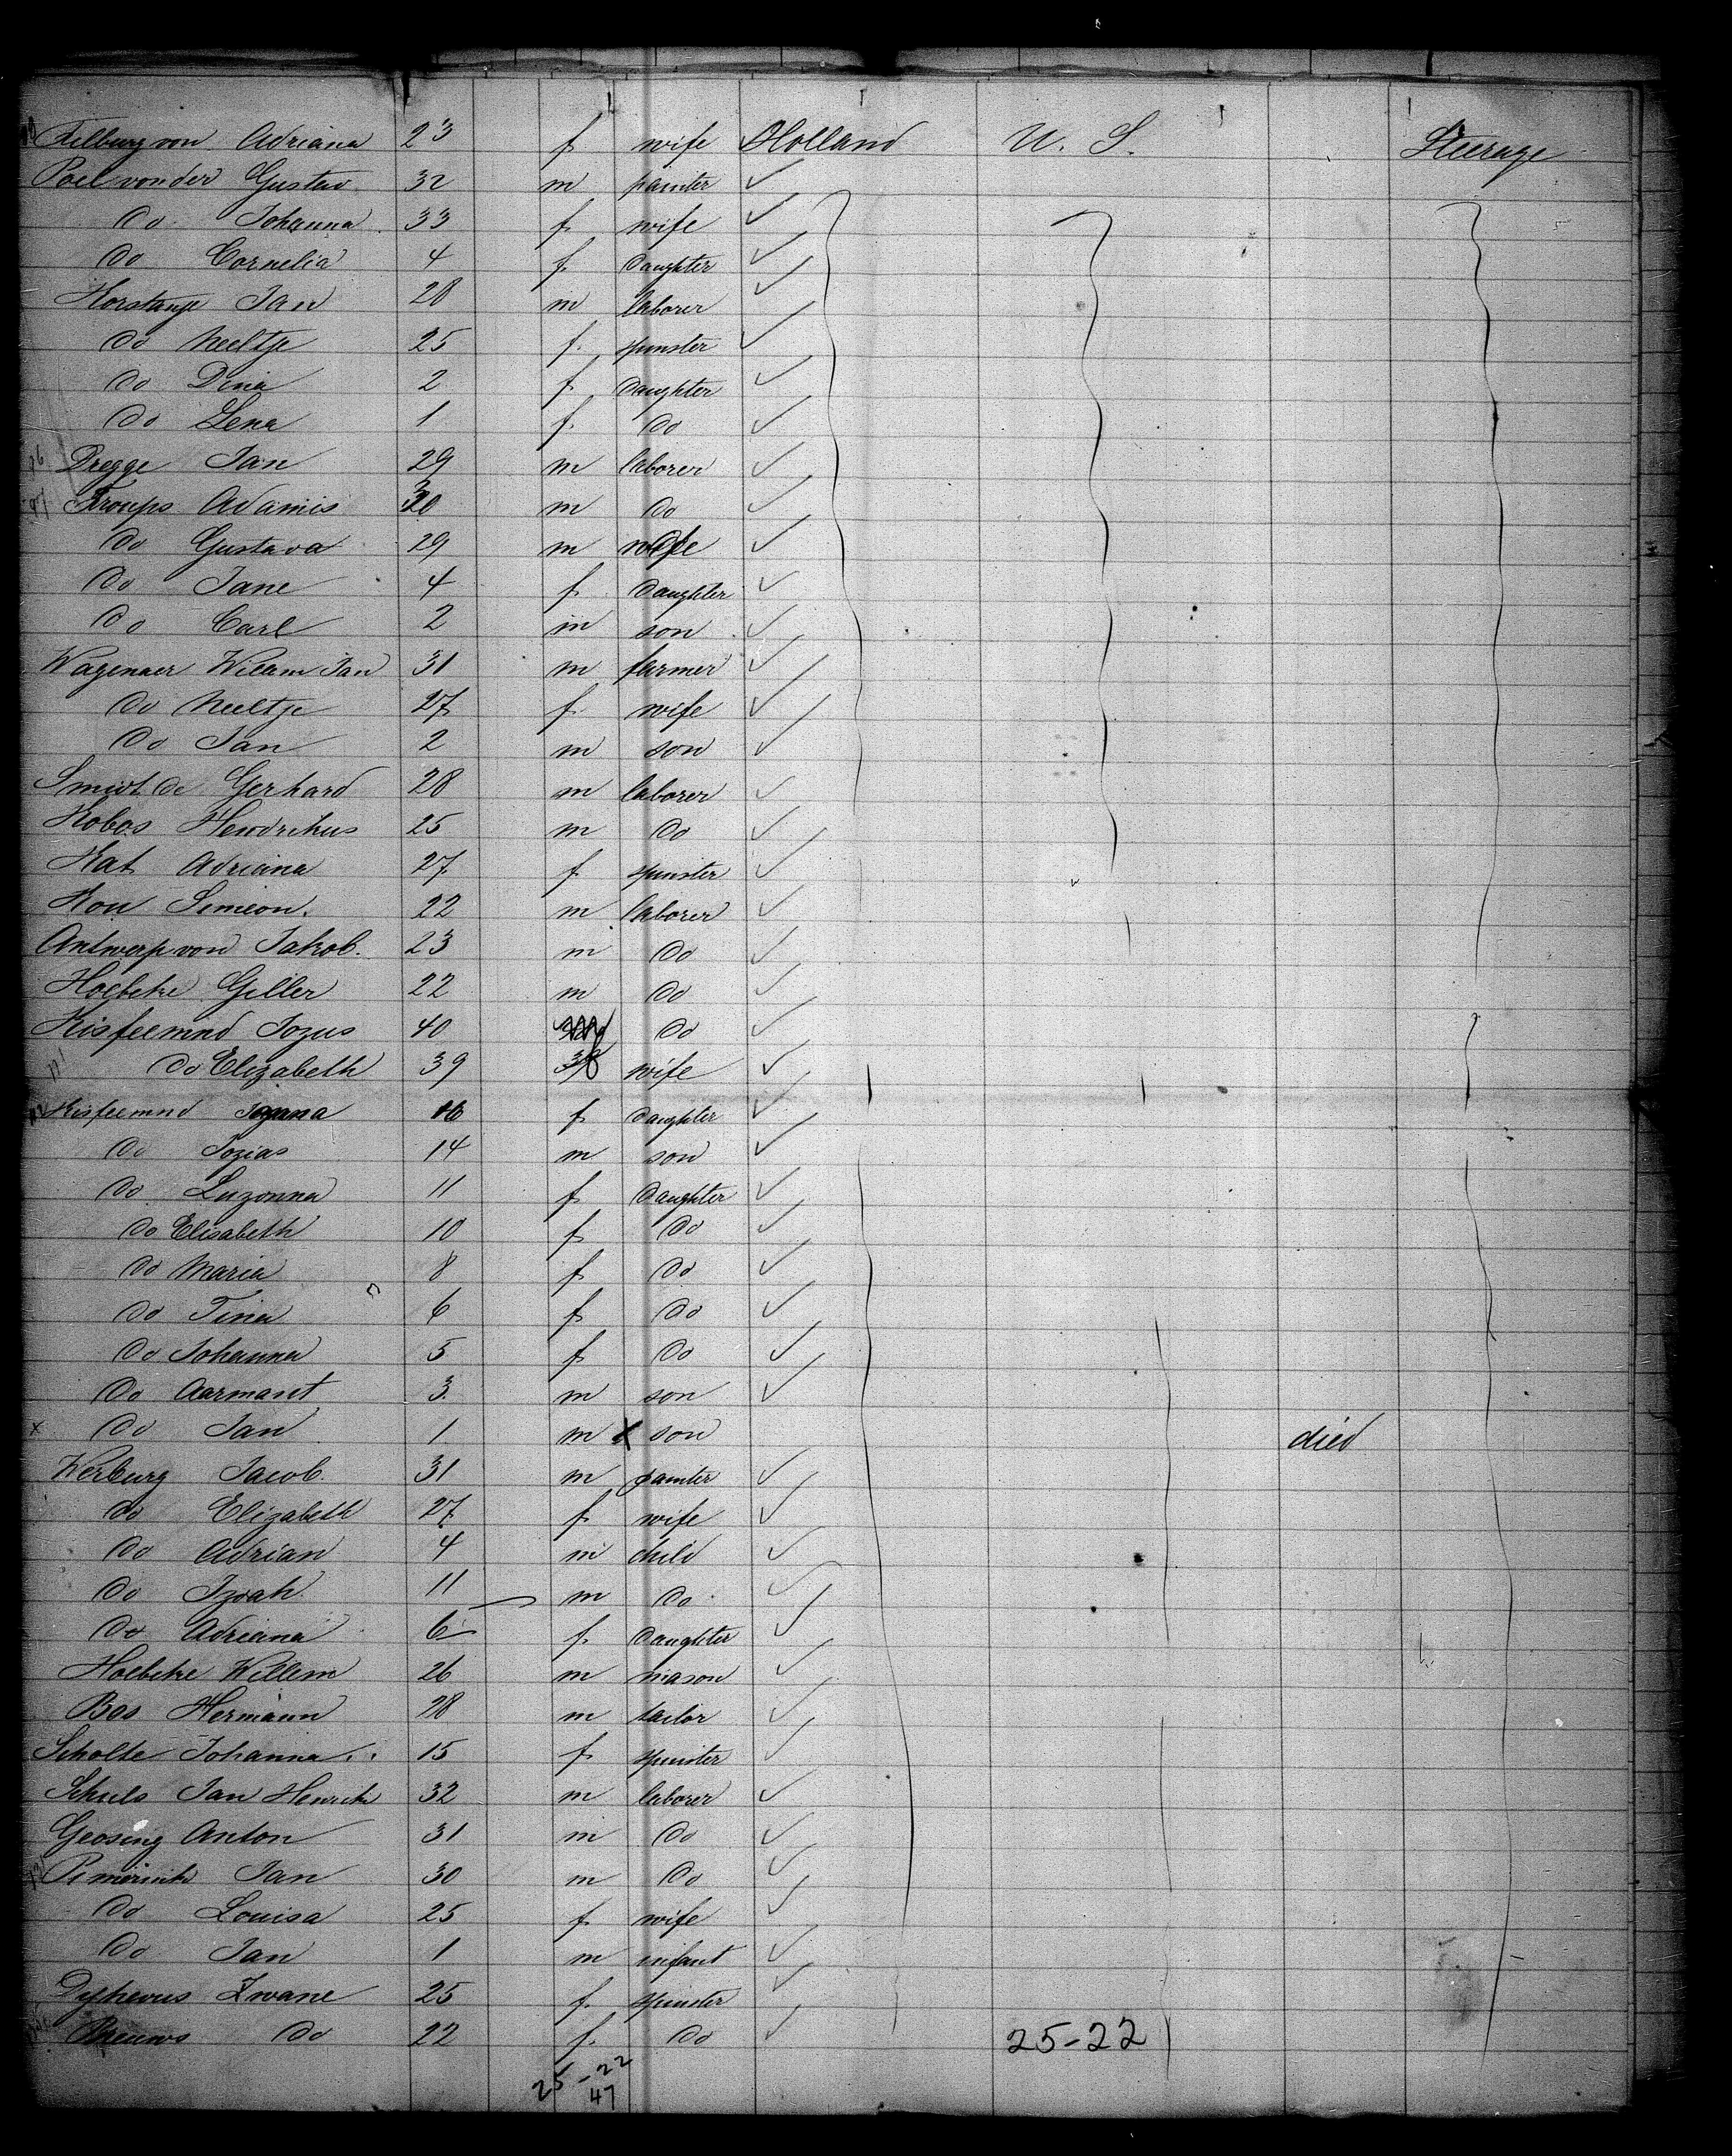 Tilburg von Adriana 23 f wife Holland U. S. Steerage
Poel von der Gustav 32 m painter
do Johanna 33 f wife
do Cornelia 4 f daughter
Korstanje Jan 28 m laborer
do Neeltje 25 f. spinster
do Dina 2 f daughter
do Lena 1 f. do
Dregge Jan 29 m laborer
Troups Adamis 30 m do
do Gustava 29 m wife
do Jane 4 f daughter
do Carl 2 m son
Wagenaer Willam Jan 31 m farmer
do Neeltje 27 f wife
do Jan 2 m son
Smidt de Gerhard 28 m laborer
Kobos Hendrikus 25 m do
Kat Adriana 27 f spinster
Kou Simeon. 22 m laborer
Antwerp von Jakob. 23 m do
Hoebeke Giller 22 m do
Kisfeemnd Jozus 40 do
do Elizabeth 39 wife
Kisfeemnd 16 f daughter
do Jozias 14 m son
do Luzonna 11 f daughter
do Elisabeth 10 f do
do Maria 8 f do
do Tina 6 f do
do Johanna 5 f do
do Aarmant 3 m son
x do Jan 1 m x son died
Verburg Jacob. 31 m painter
do Elizabeth 27 f wife
do Adrian 4 m child
do Izaah 11 m do
do Adriana 6 f daughter
Hoebeke Willem 26 m mason
Bos Hermann 28 m tailor
Scholte Johanna 15 f spinster
Schuls Jan Henrik 32 m laborer
Geosing Anton 31 m do
Jan 30 m do
do Louisa 25 f wife
do Jan 1 m infant
Zwane 25 f. spinster
do 22 f. do 25-22
25-22
47